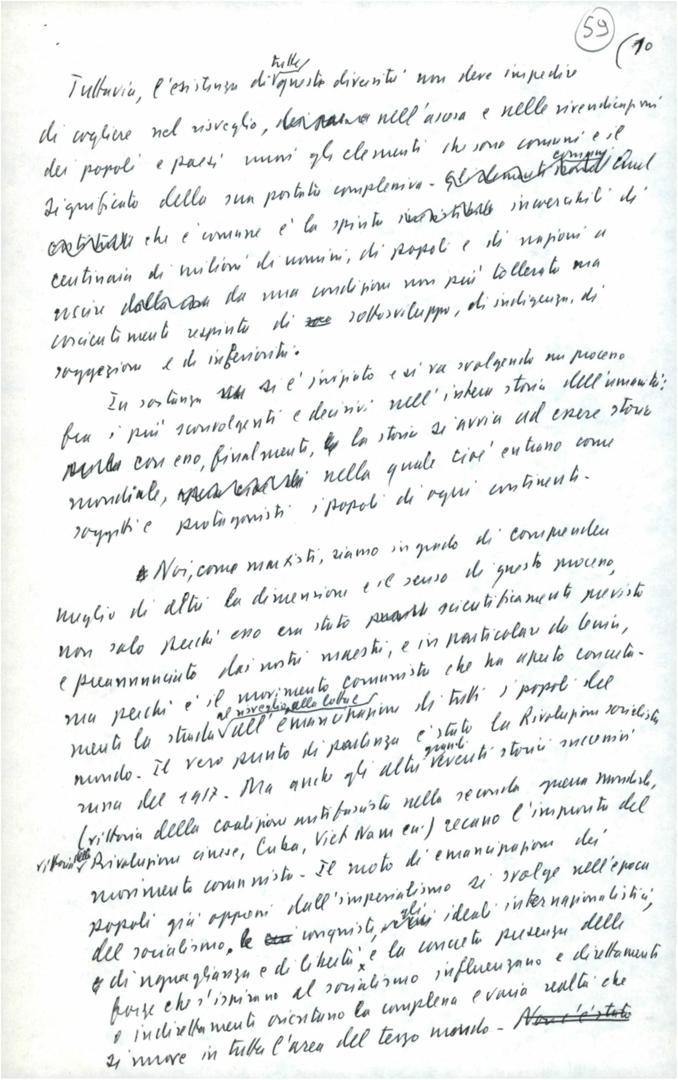 59
(10
Tuttavia, l'esistenza di tutte queste diversità non deve impedire
di cogliere nel risveglio, nell'ascesa e nelle rivendicazioni
dei popoli e paesi nuovi gli elementi che sono comuni e il
significato della sua portata complessiva - gli elementi comuni Quel
che è comune è la spinta incoercibile di
centinaia di milioni di uomini, di popoli e di nazioni a
uscire dalla da una condizione non più tollerata ma
coscientemente respinta di sottosviluppo, di indigenza, di
soggezione e di inferiorità.
In sostanza si è iniziato e si va svolgendo un processo
fra i più sconvolgenti e decisivi nell'intera storia dell'umanità:
con esso, finalmente, la storia si avvia ad essere storia
mondiale, nella quale cioè entrano come
soggetti e protagonisti i popoli di ogni continente.
Noi, come marxisti, siamo in grado di comprendere
meglio di altri la dimensione e il senso di questo processo,
non solo perché esso era stato scientificamente previsto
e preannunciato dai nostri maestri, e in particolare da Lenin,
ma perché è il movimento comunista che ha aperto concreta-
mente la strada al risveglio, alla lotta e all'emancipazione di tutti i popoli del
mondo. Il vero punto di partenza è stato la Rivoluzione socialista
russa del 1917. Ma anche gli altri grandi eventi storici successivi
(vittoria della coalizione antifascista nella seconda guerra mondiale,
vittoria della Rivoluzione cinese, Cuba, Viet Nam ecc.) recano l'impronta del
movimento comunista. Il moto di emancipazione dei
popoli già oppressi dall'imperialismo si svolge nell'epoca
del socialismo, le conquiste, gli ideali internazionalistici,
di uguaglianza e di libertà, e la concreta presenza delle
forze che s'ispirano al socialismo influenzano e direttamente
o indirettamente orientano la complessa e varia realtà che
si muove in tutta l'area del terzo mondo - Non c'è stato